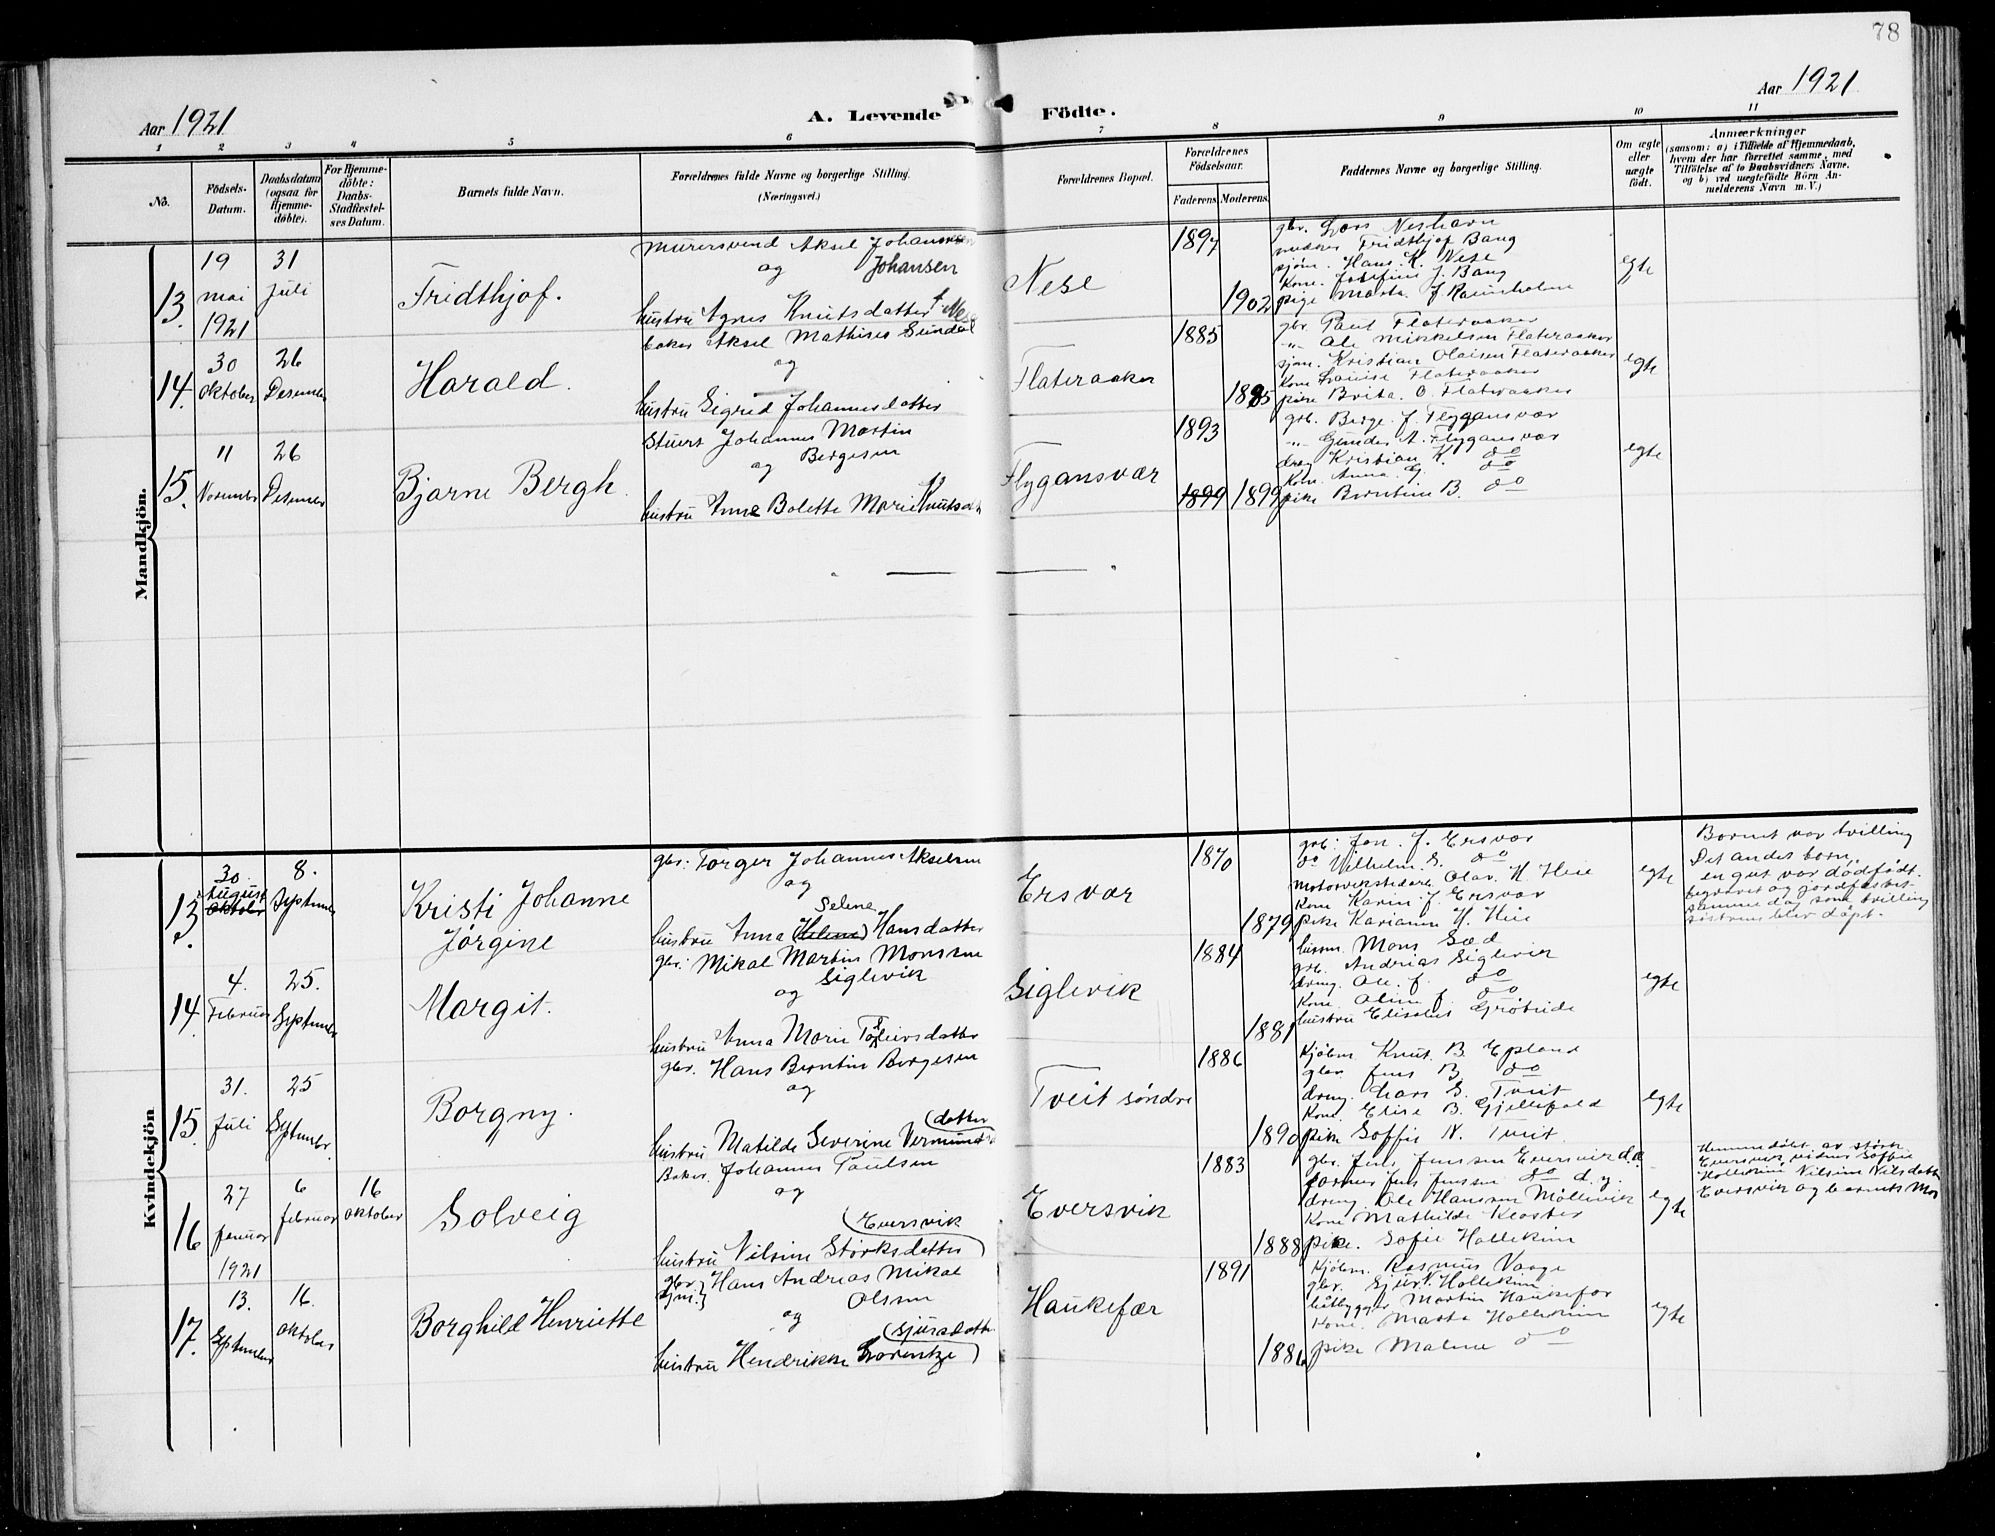 78
Aar 1921
A. Levende Födte.
Aar 1921
1 2 3 4 5 6 7 8 9 10 11
No.
Födsels-Datum.
Daabsdatum (ogsaa for Hjemme-döbte).
For Hjemme-döbte: Daabs-Stadfæstel-ses Datum.
Barnets fulde Navn.
Forældrenes fulde Navne og borgerlige Stilling.
(Næringsvei.)
Forældrenes Bopæl.
Forældrenes Födselsaar.
Faderens. Moderens.
Faddernes Navne og borgerlige Stilling.
Om ægte eller uægte födt.
Anmærkninger
(saasom: a) i Tilfælde af Hjemmedaab,
hvem der har forrettet samme, med
Tilföielse af to Daabsvidners Navne,
og b) ved uægtefödte Börn An-
melderens Navn m. V.)
Mandkjön.
13.
19 mai 1921
31 Juli
Fridthjof.
murersvend Aksel Johannesen
og Johansen
hustru Agnes Knutsdatter Nese
Nese
1897
1902
gbr. Lars Neshavn
Fridthjof Bang
sjøm. Hans K. Nese
Kone. Josefine J. Bang
pige Marta J.
egte
14.
30 oktober
26 Desember
Harald.
baker Aksel Mathises Sundal
og
hustru Sigrid Johannesdatter
Flateraaker
1885
1885
gbr. Paul Flateraaker
" Ole Mikkelsen Flateraaker
sjøm. Kristian Olaisen Flateraaker
Kone Lovise Flateraaker
pike Brita O. Flateraaker
egte
15.
11 November
26 Desember
Bjarne Bergh.
Stuert Johannes Martin
og Bergesen
hustru Anne Bolette Marie Knutsdt
Flygansvær
1893
1899 1899
grb. Berge J. Flygansvær
" Gunder A. Flygansvær
dreng Kristian K. do
Kone. Anna G. do
pike Berntine B. do
egte
Kvindekjön
13.
30. August oktober
8. September
Kristi Johanne
Jørgine
gbr. Torger Johannes Akselsen
og
Selene
hustru Anna (Helene) Hansdatter
Ersvær
1870
1879
grb: Jon. J. Ersvær
do Vilhelm S. do
Motorverkstedarb. Olav H. Heie
Kone Karen J. Ersvær
pike Karianne H. Heie
egte
Barnet var tvilling
Det andet barn,
en gut var dødfødt.
begravet og jordfæstet
samme dag som tvilling
søstrene blev døpt.
14.
4. Februar
25. September
Margit.
gbr. Mikal Martin Monssen
Siglevik
og
hustru Anna Marie Torleivsdatter
Siglevik
1884
1881
husm. Mons Sæd
grb. Andrias Siglevik
dreng. Ole. J. do
Kone Oline J. do
hustru Elisabet Grøtside
egte
15.
31. Juli
25 September
Borgny.
gbr. Hans Berntin Bergesen
og
(datter
hustru Matilde Severine Vermunds
Tveit søndre
1886
1890
Kjøbm. Knut. B. Epland
gbr. Jens B. do
dreng. Lars S. Tveit
Kone Elise B. Gjellefald
pike Soffie N. Tveit.
egte
16
27 januar 1921
6 februar
16 oktober
Solveig
Baker. Johannes Paulsen
og
(Eversvik
hustru Nilsine Størksdatter)
Eversvik
1883
1888
gbr. Jens Jenssen Eversvik d.e.
Jens Jenssen do d.y.
dreng Ole Hansen Møllevik
Kone Mathilde Kloster
pike. Sofie Hallekim
egte
Hjemmedøbt av Størk
Eversvik, vidner Soffie
Hallekim Nilsine Nilsdatter
Eversvik og barnets Mor
17.
13. September
16. oktober
Borghild Henriette
gbr. sjm. } Hans Andrias Mikal
Olsen
og
(Sjursdatter
hustru Hendrikke Lorentze)
Haukefær
1891
1886
Kjøbm. Rasmus Vaage
gbr. Sjur N. Hallekim
båtbygger Martin Haukefær
Kone. Marta Hallekim
pike Malene do
egte